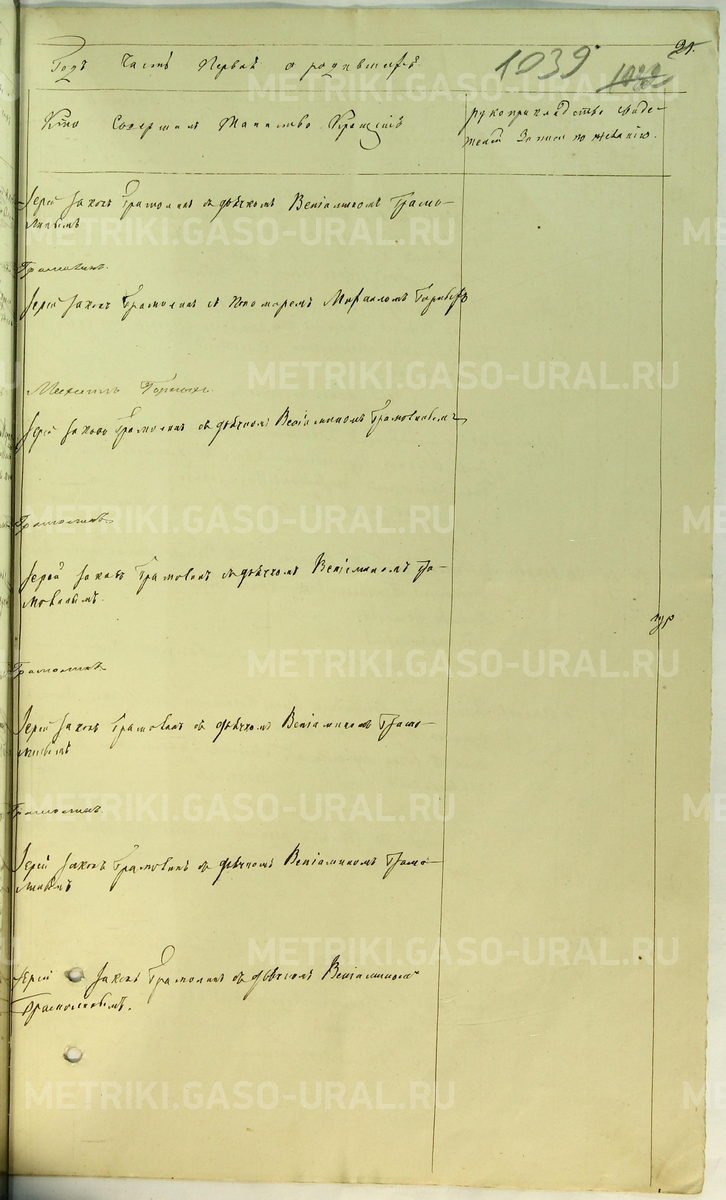 25.
Годъ Часть Первая о родившихся
1039
Кто Совершал Таинство Крещенія
рукоприкладство свиде-
телей записи по желанію.
Іерей Іаковъ Грамолинъ съ дьячкомъ Веніаминомъ Грамо-
линымъ
Іерей Іаковъ Грамолинъ съ пономаремъ Михаиломъ
Михаилъ
Іерей Іаковъ Грамолинъ съ дьячкомъ Веніаминомъ Грамолинымъ
Грамолинъ
Іерей Іаковъ Грамолинъ съ дьячкомъ Веніаминомъ Гра-
молинымъ.
Грамолинъ
Іерей Іаковъ Грамолинъ съ дьячкомъ Веніаминомъ Грамо-
линымъ
Грамолинъ
Іерей Іаковъ Грамолинъ съ дьячкомъ Веніаминомъ Грамо-
линымъ
Іерей Іаковъ Грамолинъ съ дьячкомъ Веніаминомъ
Грамолинымъ.
METRIKI.GASO-URAL.RU